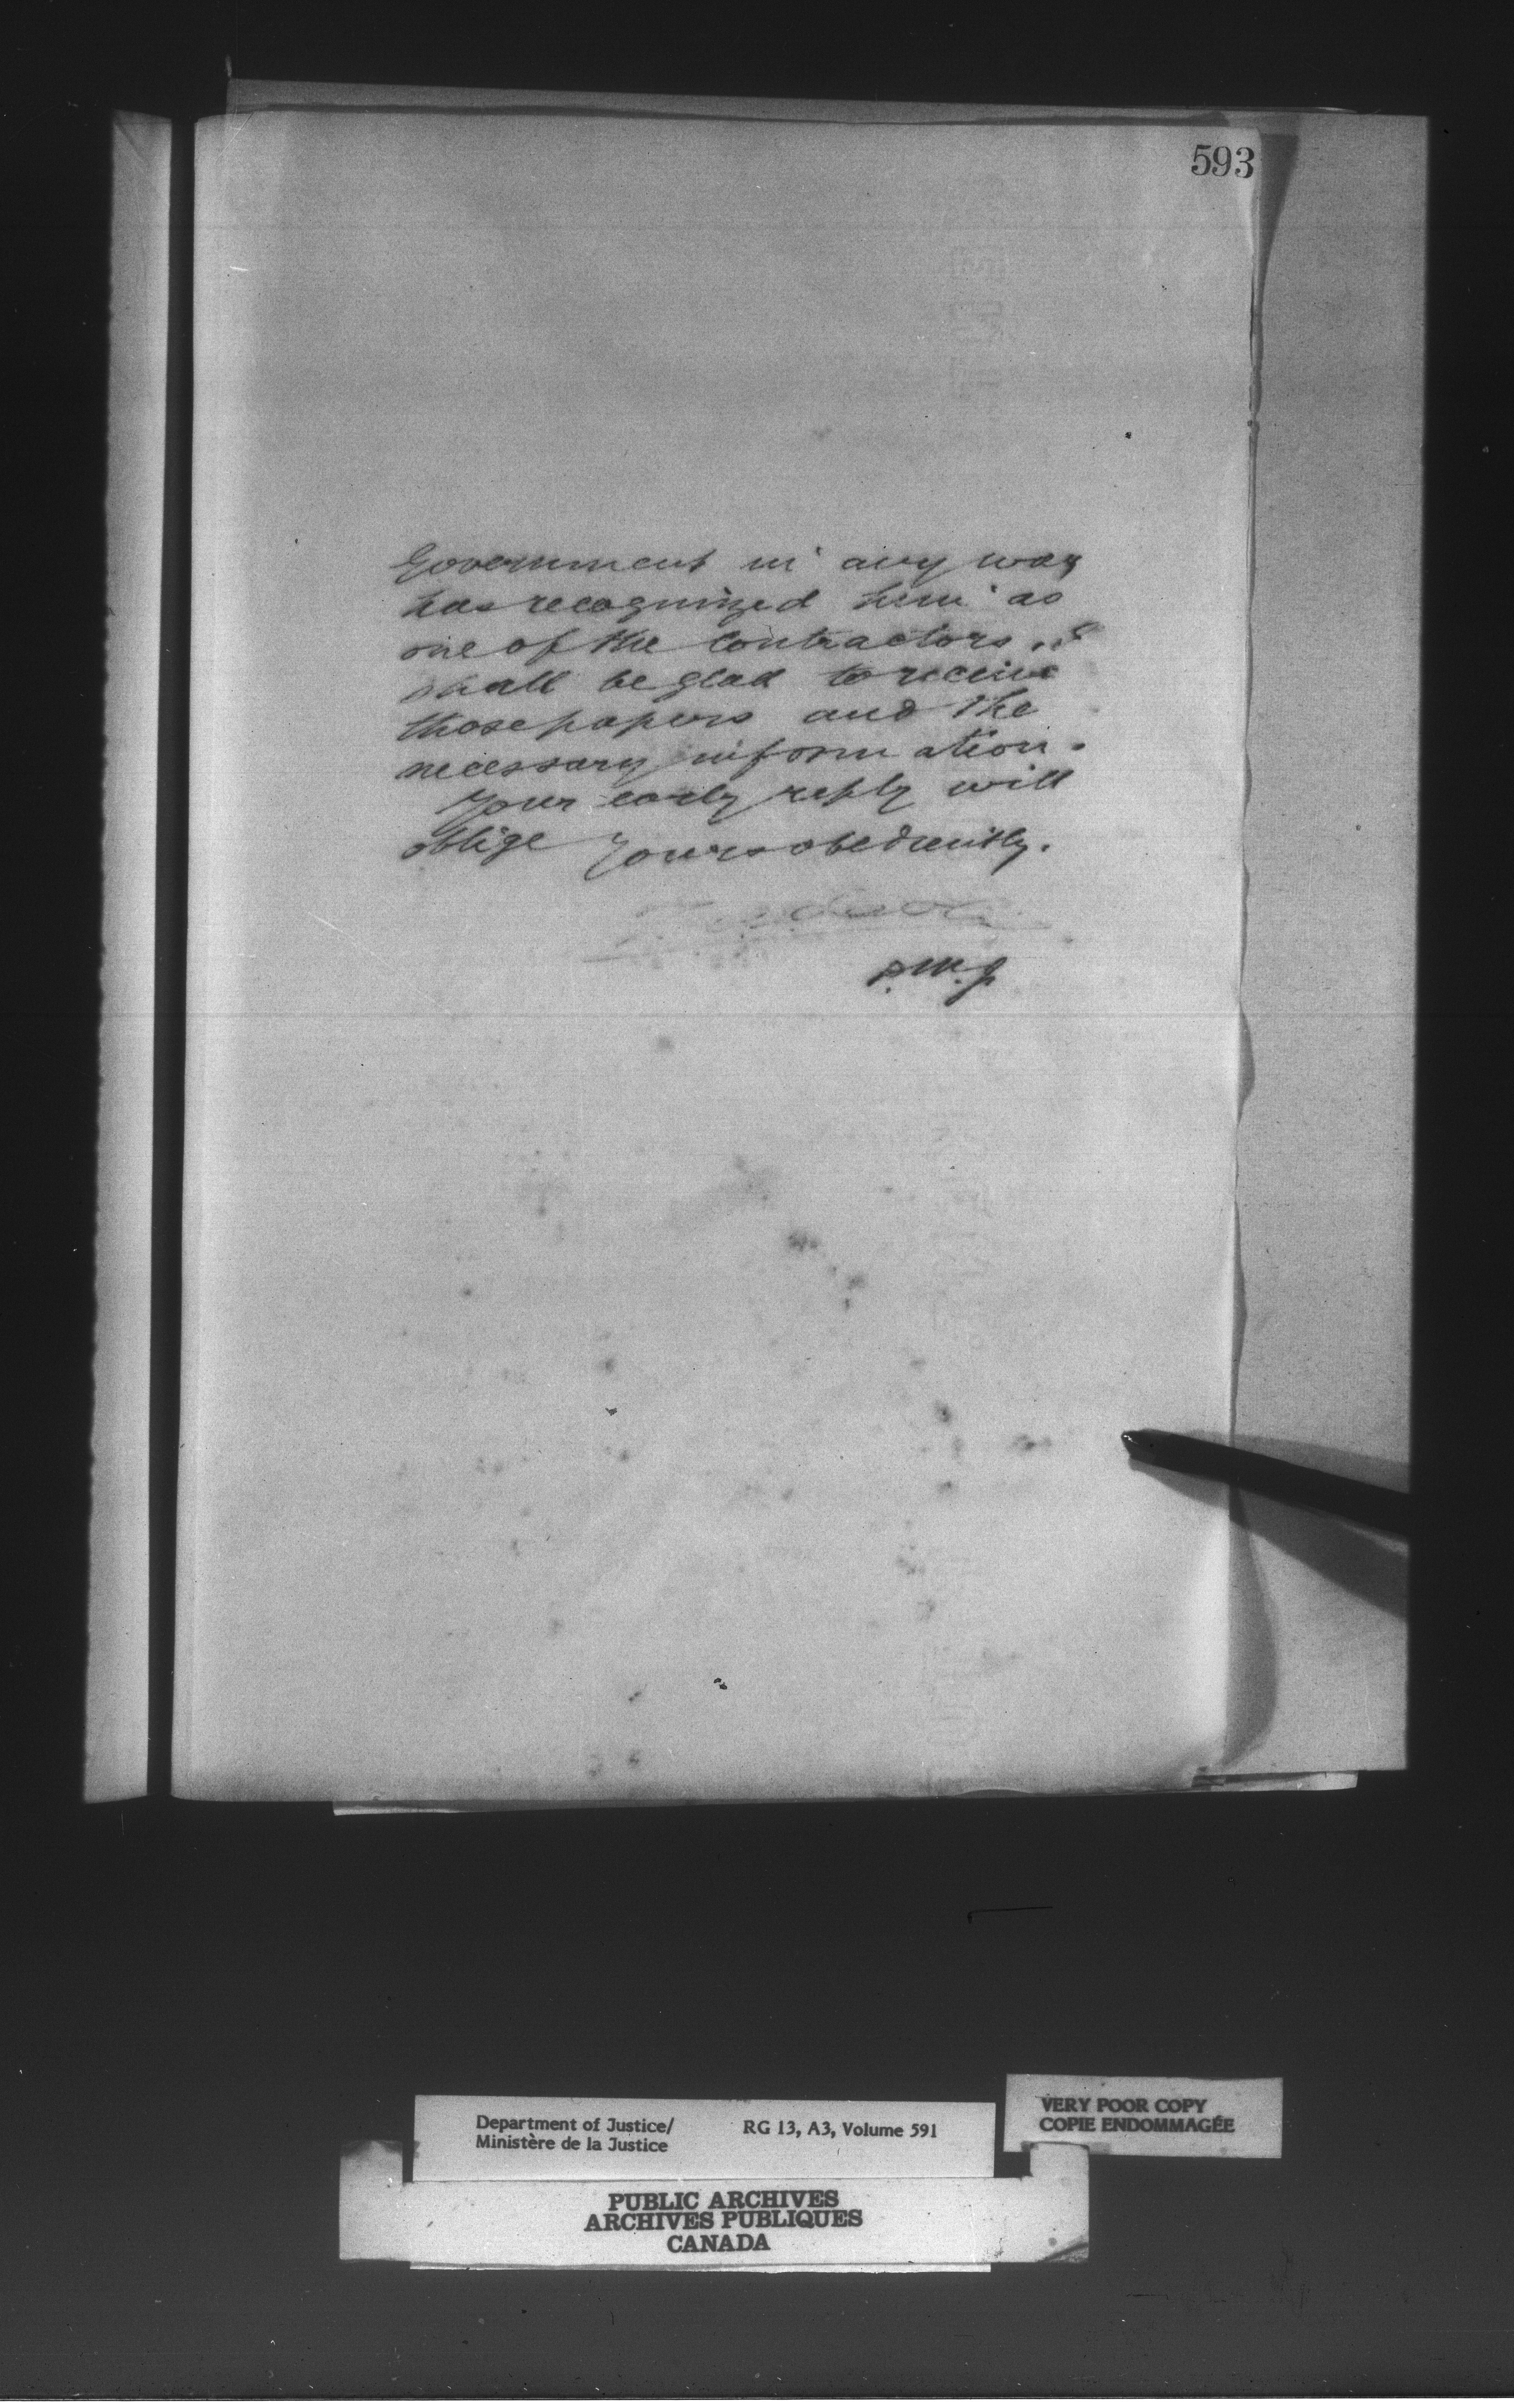 593
Government in any way
has recognized him as
one of the Contractors. I
shall be glad to receive
those papers and the
necessary information.
Your early reply will
oblige Yours obediently.
D.M.J.
Department of Justice/
Ministère de la Justice
RG 13, A3, Volume 591
VERY POOR COPY
COPIE ENDOMMAGÉE
PUBLIC ARCHIVES
ARCHIVES PUBLIQUES
CANADA